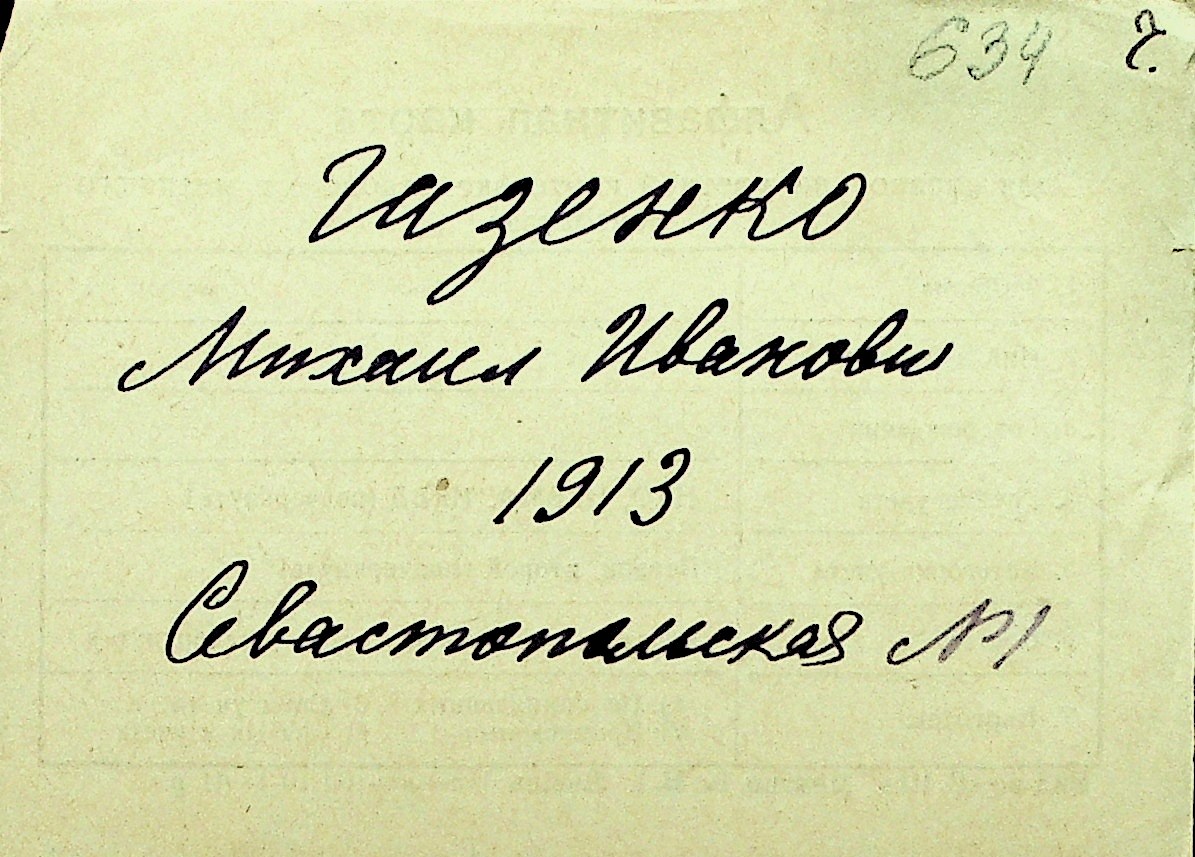 634 г.
Газенко
Михаил Иванови
1913
Севастопольская №1